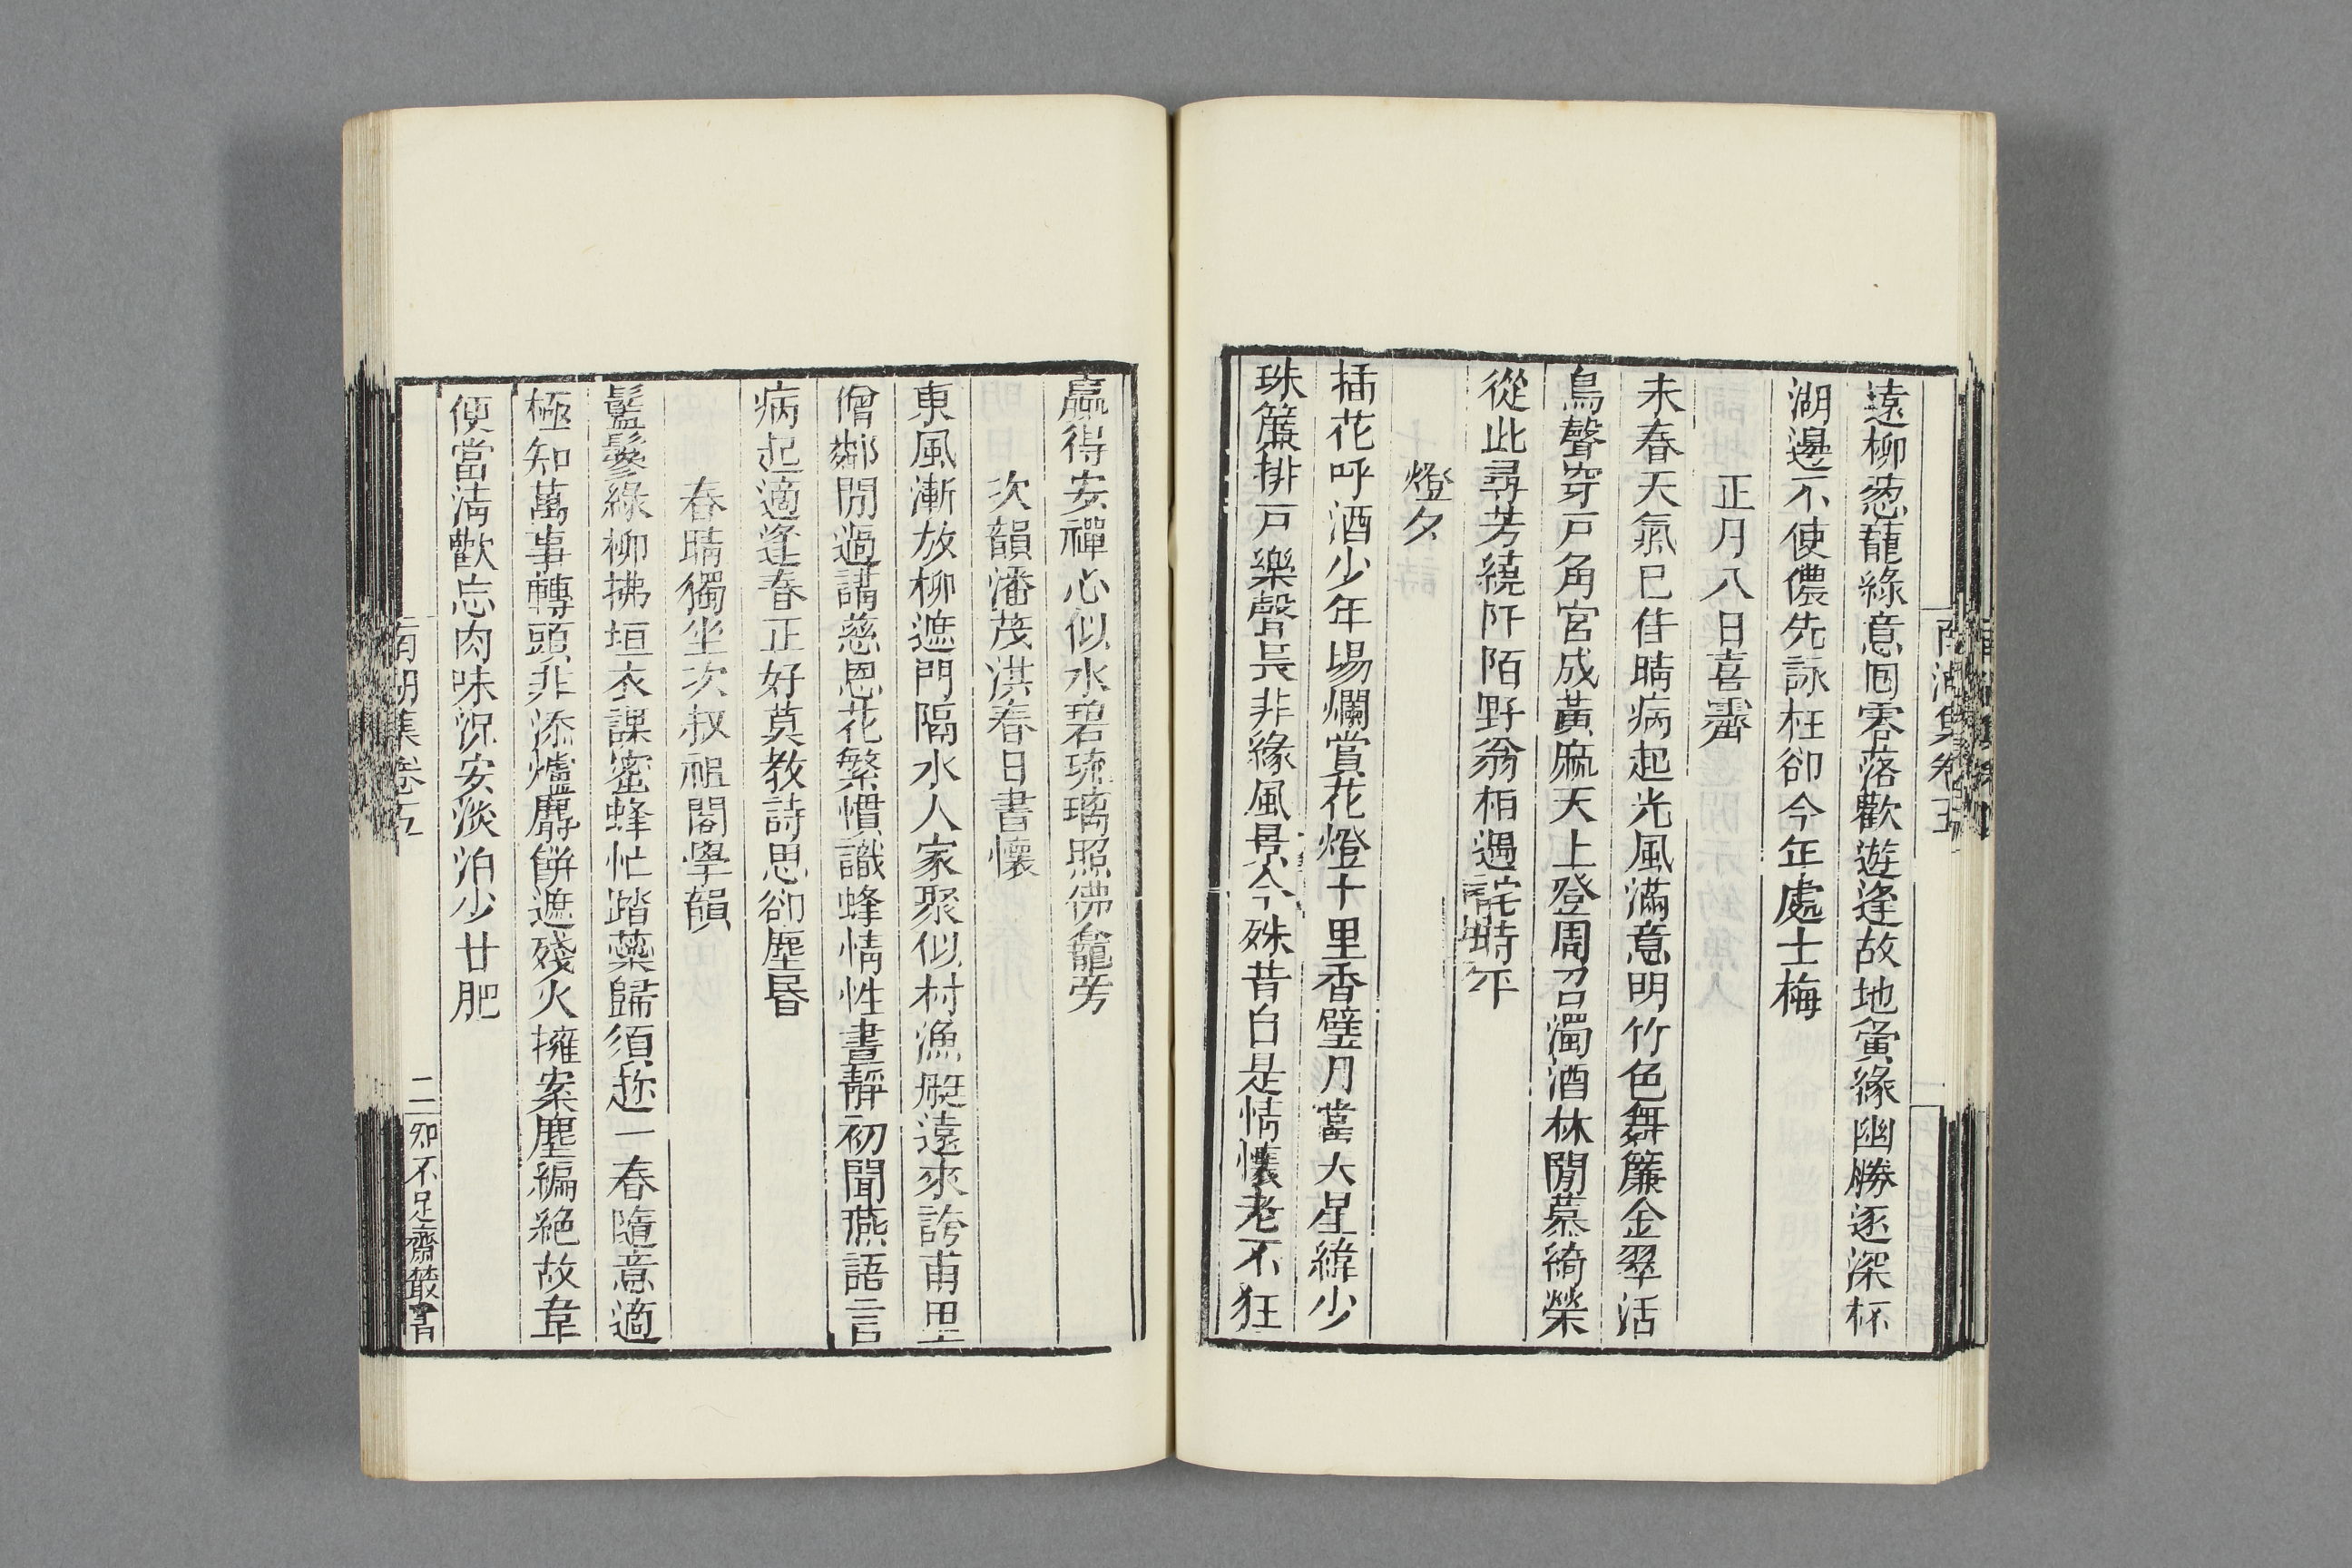 遠柳葱蘢綠意囘零落歡遊逢故地夤緣幽勝逐深杯
湖邊不使儂先詠枉卻今年處士梅
正月八日喜霽
未春天氣已佳晴病起光風滿意明竹色舞簾金翠活
鳥聲穿戸角宮成黃麻天上登周召濁酒林閒慕綺榮
從此尋芳繞阡陌野翁相遇詫時平
燈夕
插花呼酒少年場爛賞花燈十里香璧月當天星緯少
珠簾排戸樂聲長非緣風景今殊昔自是情懷老不狂
贏得安禪心似水碧琉璃照佛龕旁
次韻潘茂洪春日書懷
東風漸放柳遮門隔水人家聚似村漁艇遠來誇甫里
僧鄰閒過講慈恩花繁慣識蜂情性晝靜初聞燕語言
病起適逢春正好莫教詩思卻塵昏
春晴獨坐次叔祖閣學韻
鬅鬖綠柳拂垣衣課蜜蜂忙踏藥歸須趁一春隨意適
極知萬事轉頭非添爐麝餅遮殘火擁案塵編絕故韋
便當清歡忘肉味況安淡泊少甘肥
南湖集卷五
二
知不足齋叢書